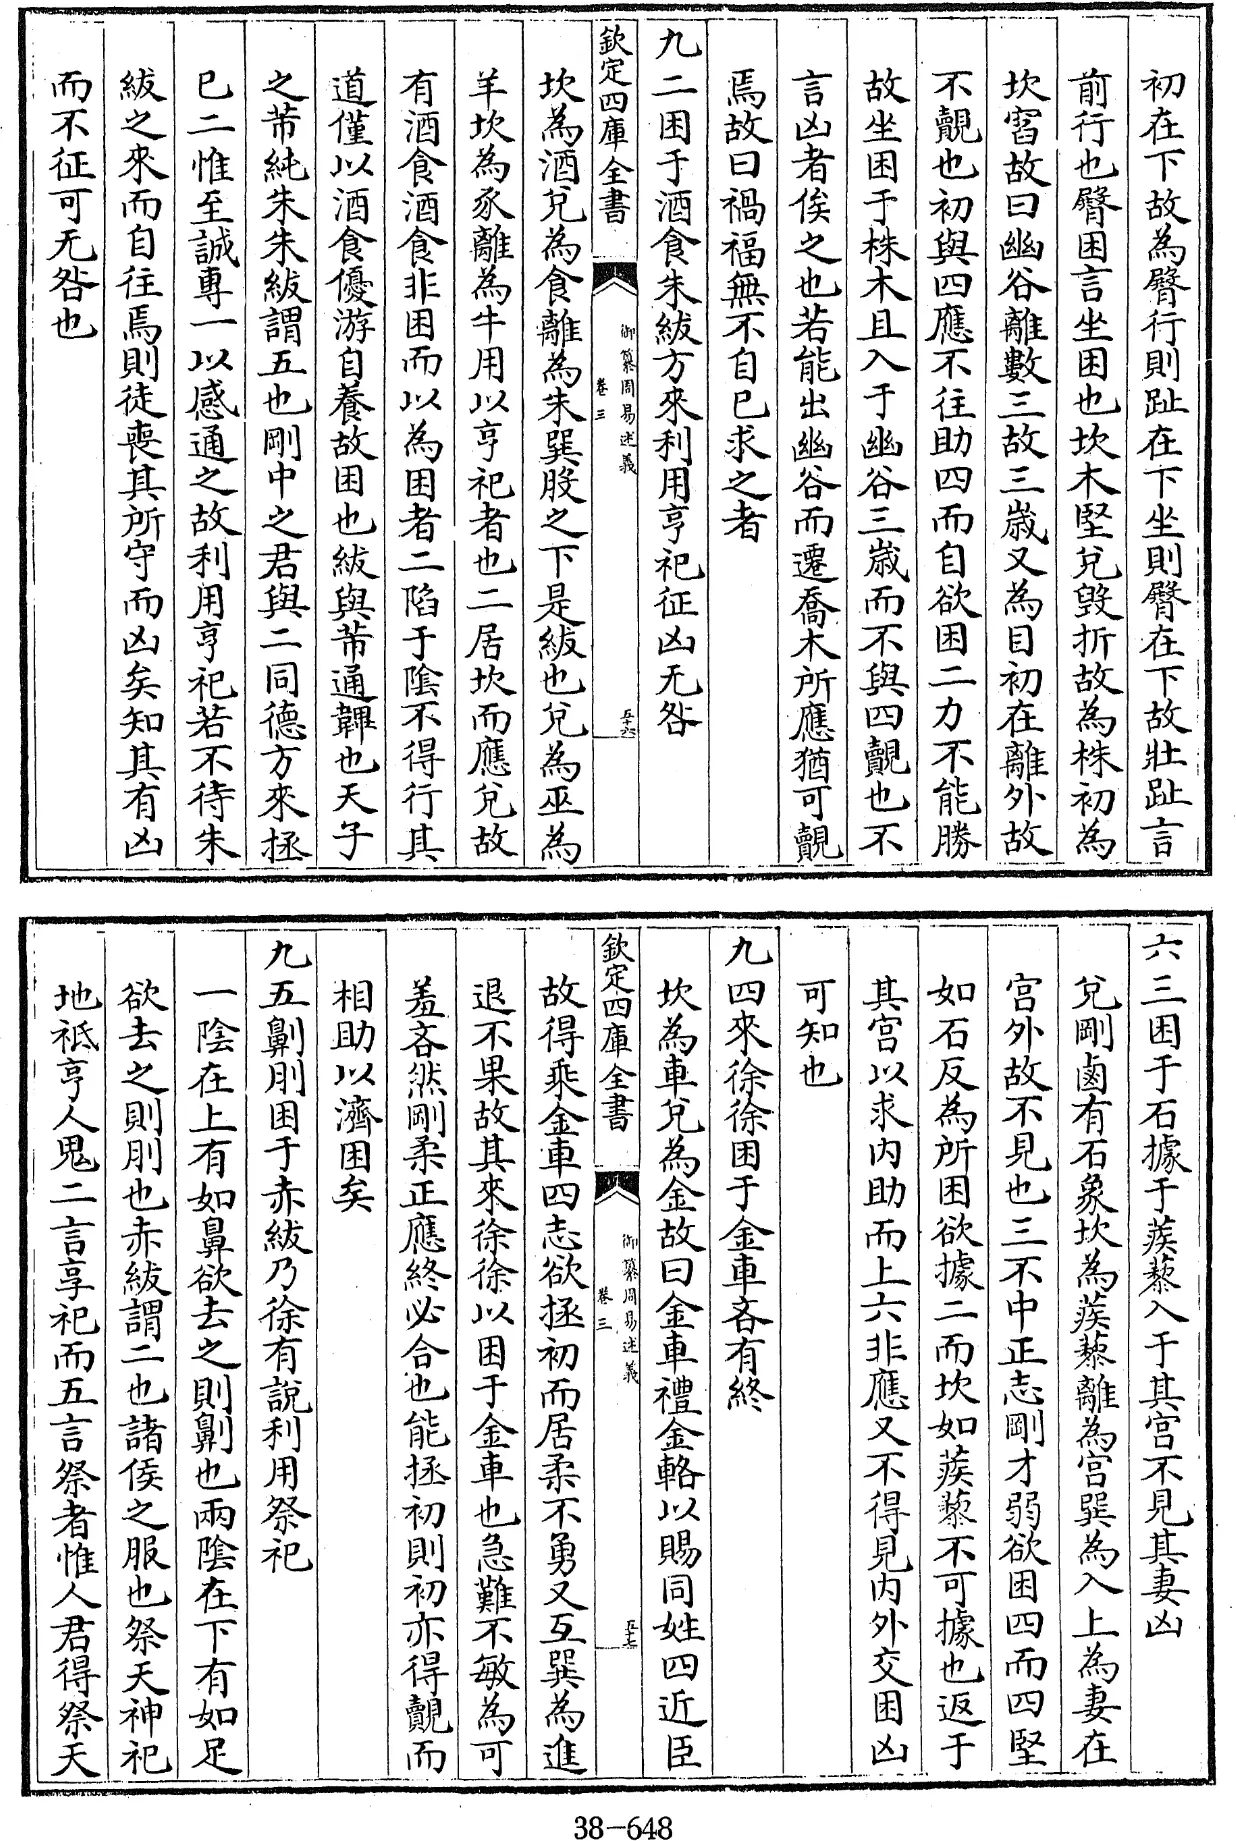 初在下故為臀行則趾在下坐則臀在下故壯趾言
前行也臀困言坐困也坎木堅兌毀折故為株初為
坎窞故曰幽谷離數三故三歳又為目初在離外故
不覿也初與四應不往助四而自欲困二力不能勝
故坐困于株木且入于幽谷三歳而不與四覿也不
言凶者俟之也若能出幽谷而遷喬木所應猶可覿
焉故曰禍福無不自已求之者
九二困于酒食朱紱方來利用亨祀征凶无咎
欽定四庫全書
御纂周易述義
卷三
五十六
坎為酒兌為食離為朱巽股之下是紱也兌為巫為
羊坎為豕離為牛用以亨祀者也二居坎而應兌故
有酒食酒食非困而以為困者二陷于陰不得行其
道僅以酒食優游自養故困也紱與芾通韠也天子
之芾純朱朱紱謂五也剛中之君與二同德方來拯
已二惟至誠專一以感通之故利用亨祀若不待朱
紱之來而自往焉則徒喪其所守而凶矣知其有凶
而不征可无咎也
六三困于石據于蒺藜入于其宫不見其妻凶
兌剛鹵有石象坎為蒺藜離為宫巽為入上為妻在
宫外故不見也三不中正志剛才弱欲困四而四堅
如石反為所困欲據二而坎如蒺藜不可據也返于
其宫以求内助而上六非應又不得見内外交困凶
可知也
九四來徐徐困于金車吝有終
坎為車兌為金故曰金車禮金輅以賜同姓四近臣
欽定四庫全書
御纂周易述義
卷三
五十七
故得乘金車四志欲拯初而居柔不勇又互巽為進
退不果故其來徐徐以困于金車也急難不敏為可
羞吝然剛柔正應終必合也能拯初則初亦得覿而
相助以濟困矣
九五劓刖困于赤紱乃徐有說利用祭祀
一陰在上有如鼻欲去之則劓也兩陰在下有如足
欲去之則刖也赤紱謂二也諸侯之服也祭天神祀
地祇亨人鬼二言享祀而五言祭者惟人君得祭天
38-648